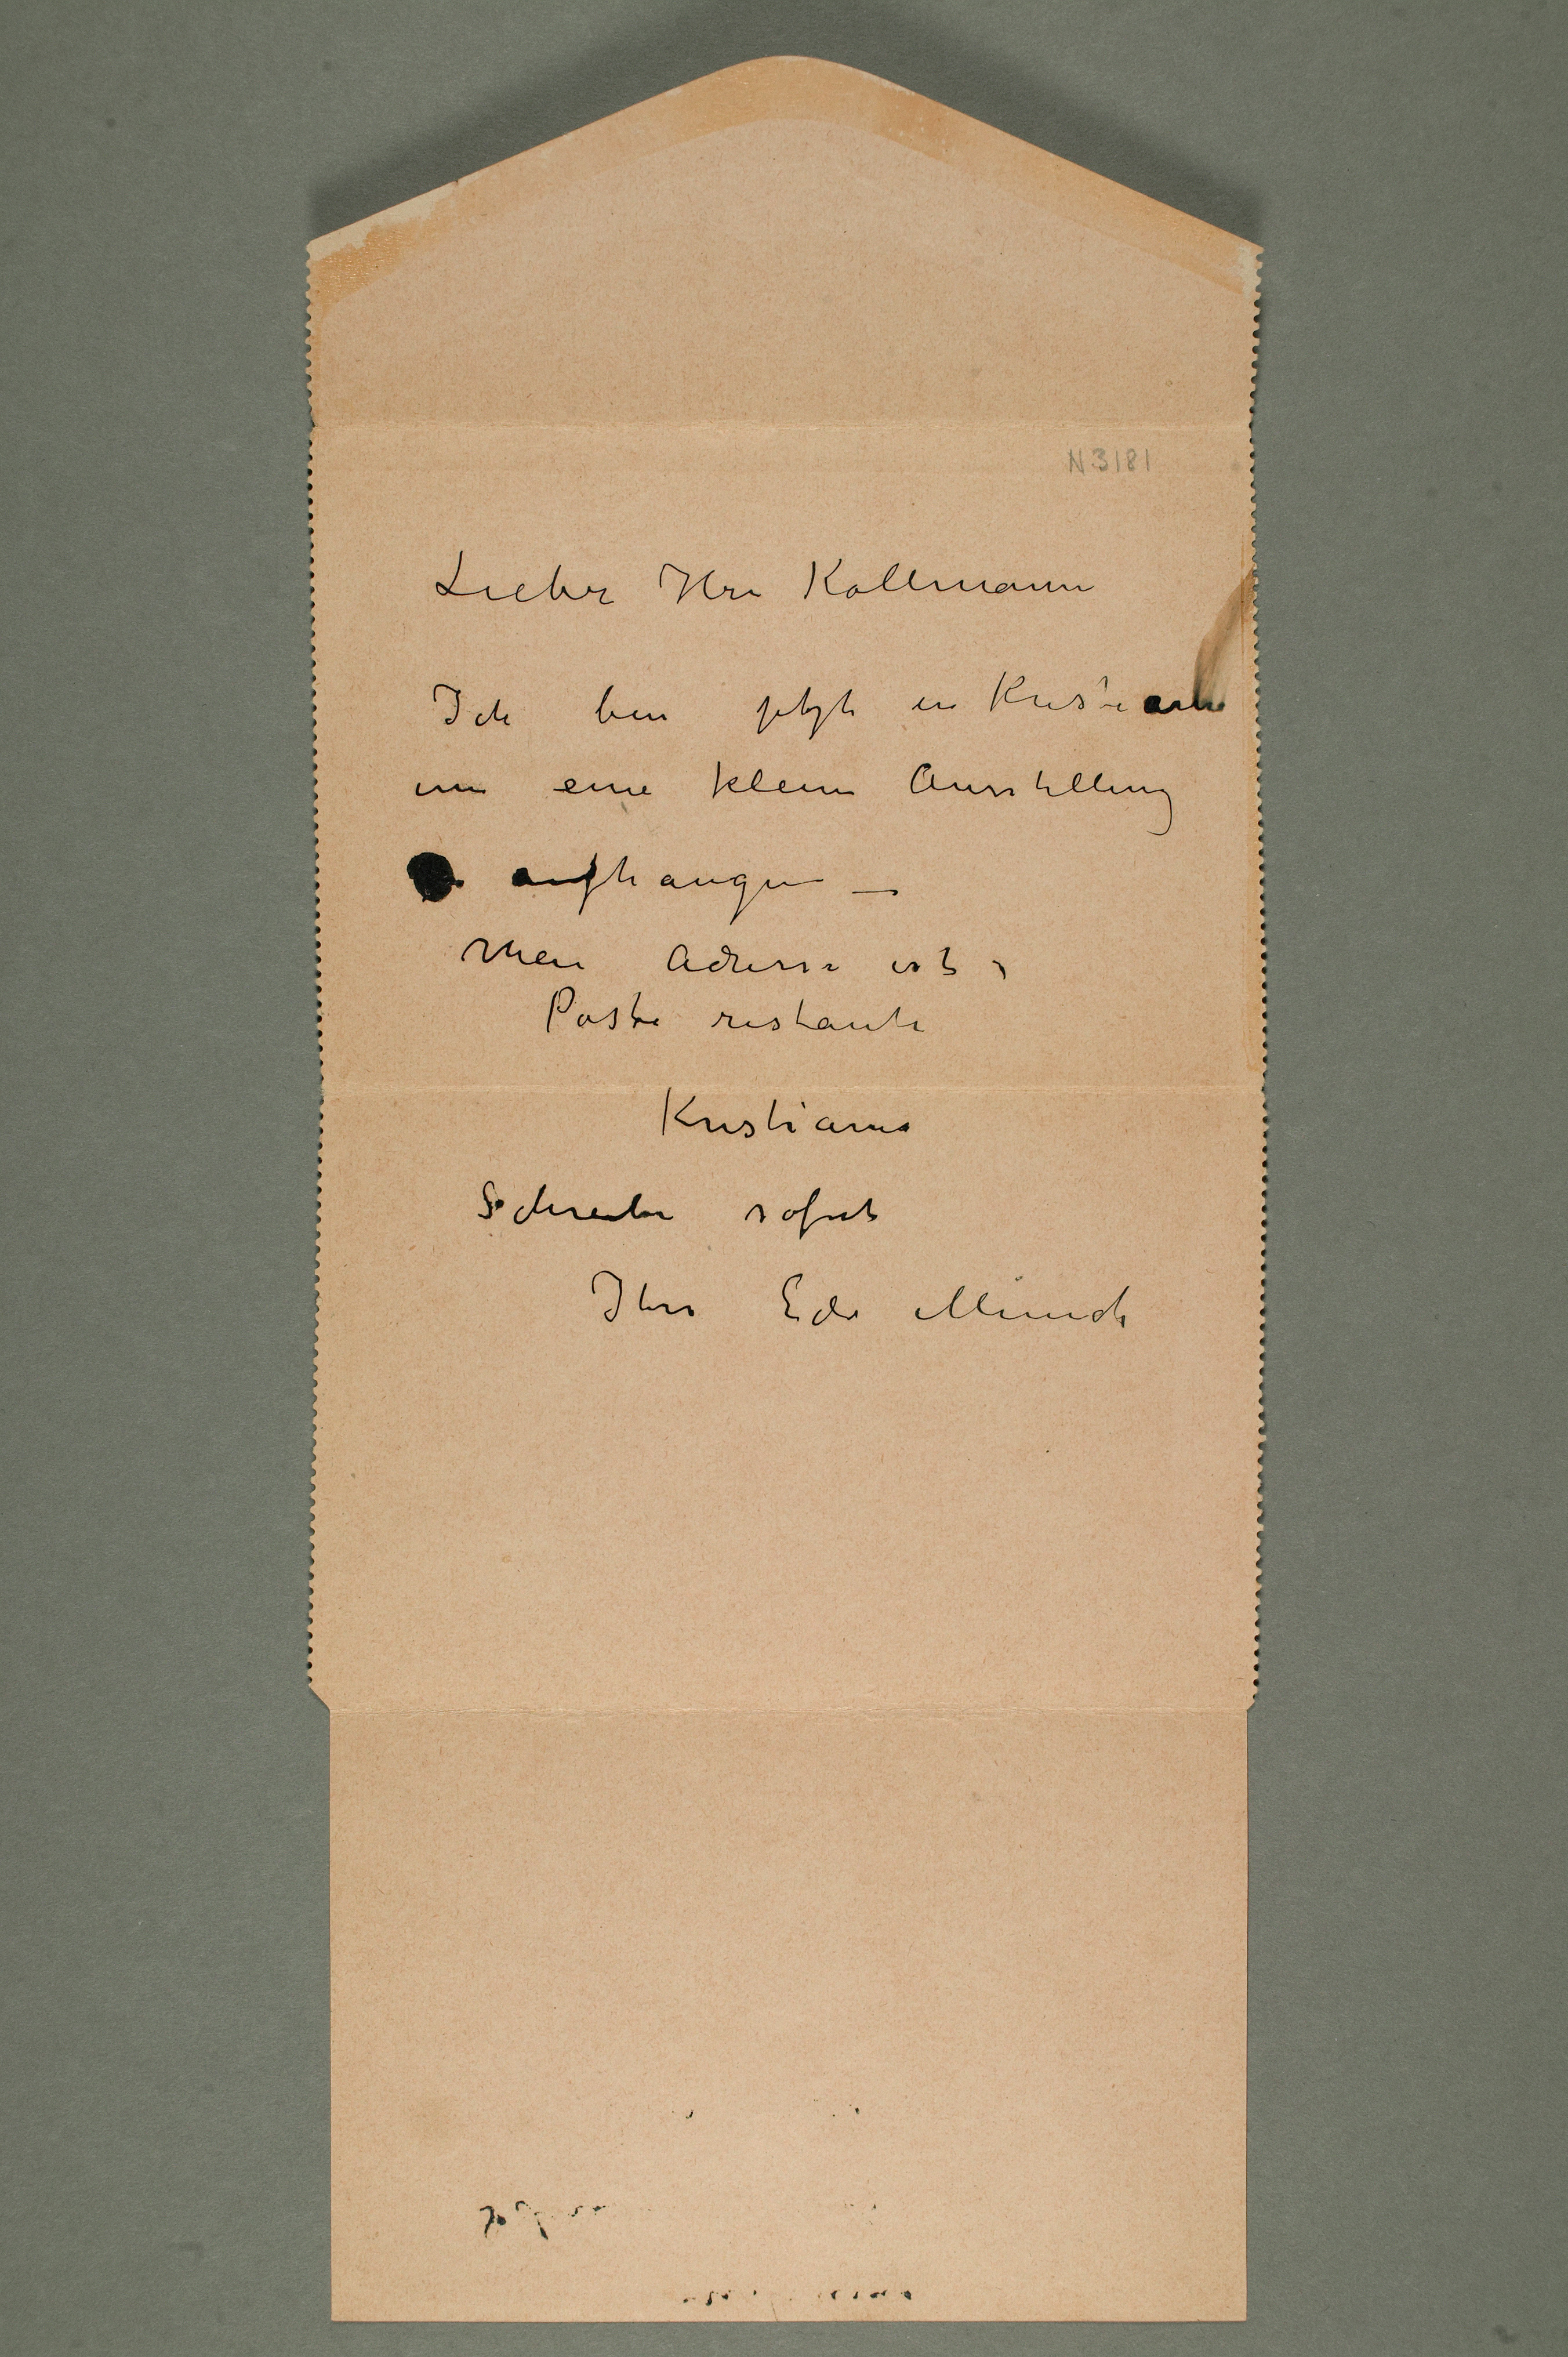 N 3181
Lieber Herr Kollmann
Ich bin jetzt in Kristiania
um eine kleine Ausstellung
aufhangen —
Mein Adresse ist:
Poste restante
Kristiania
Schreiben sofort
Ihr Edv Munch